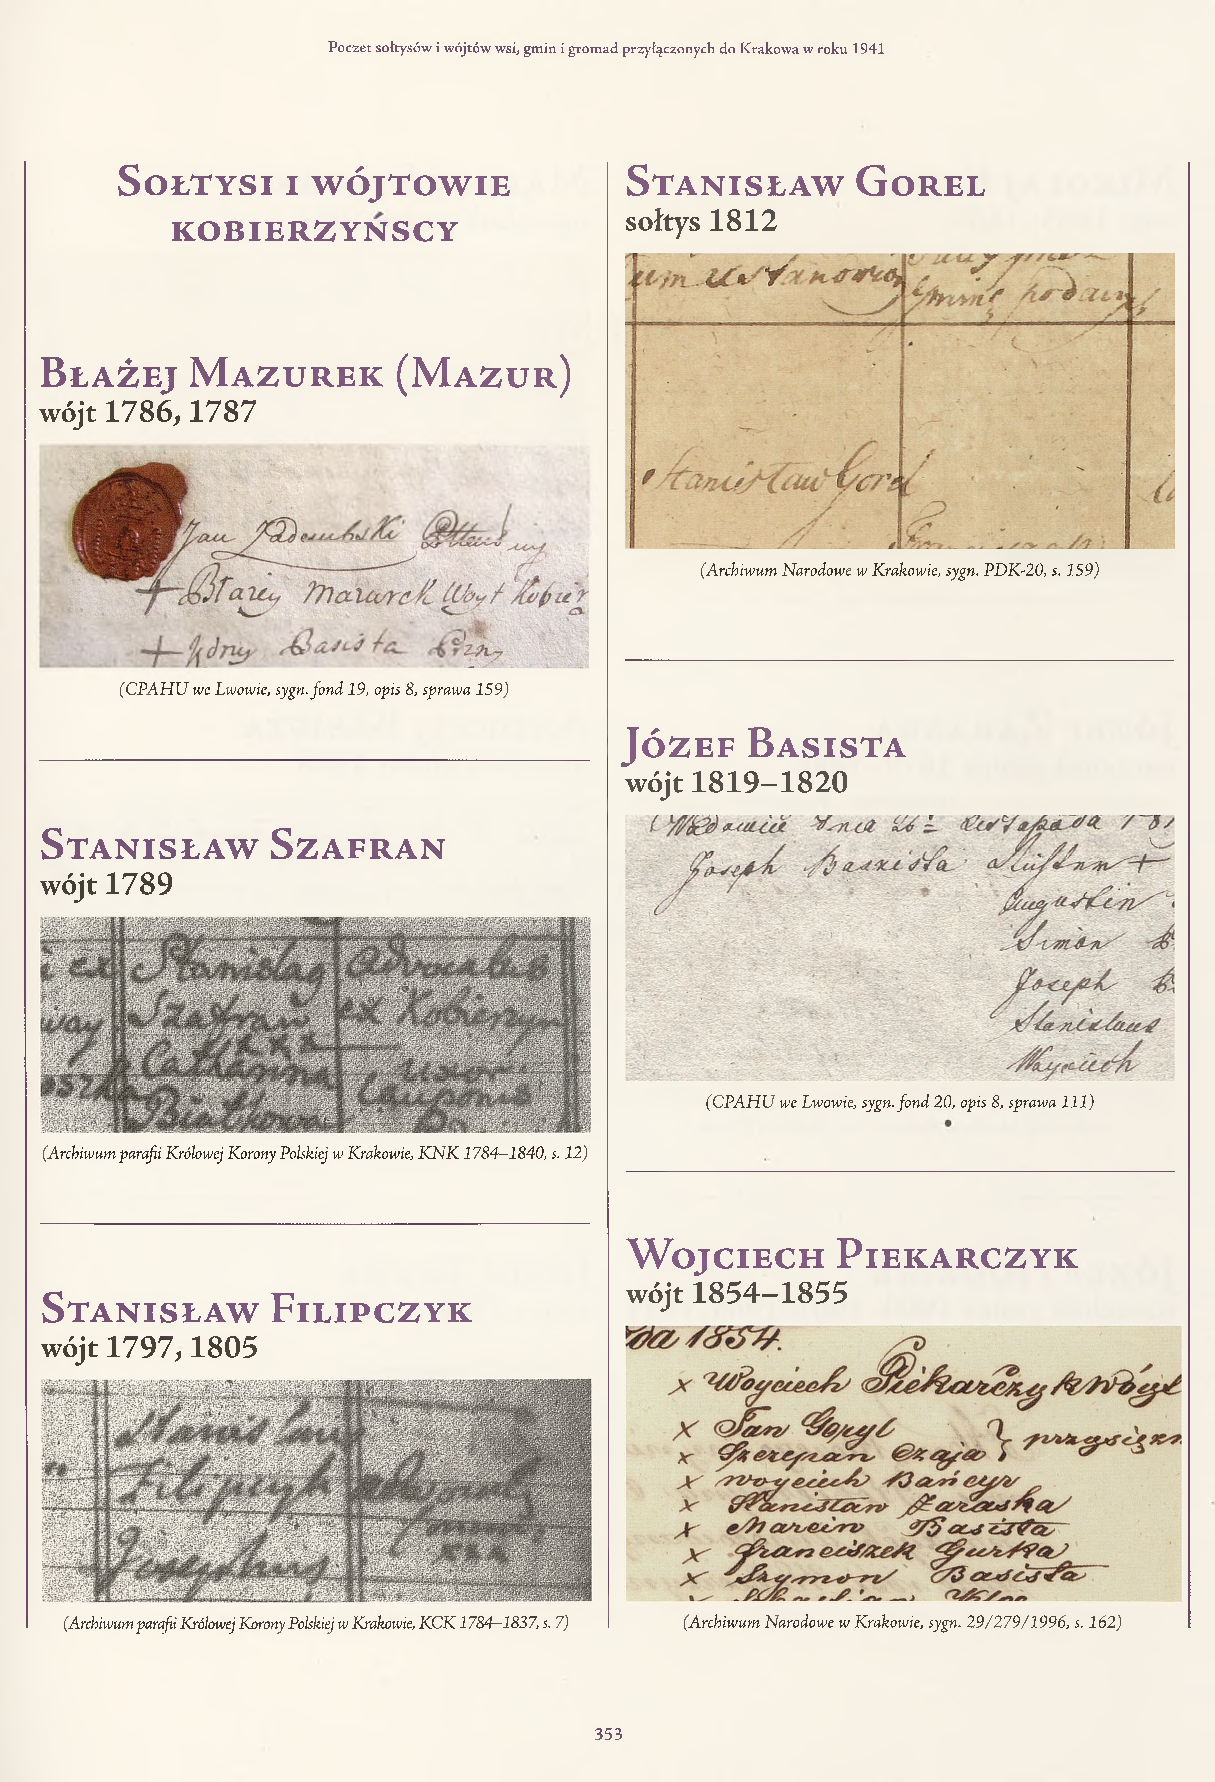 Poczet sołtysów i wójtów wsi, gmin i gromad przyłączonych do Krakowa w roku 1941
Sołtysi i wójtowie
kobierzyńscy
Błażej Mazurek (Mazur)
wójt 1786, 1787
Jan
Błażey Mazurek Woyt Kobier
Jędrzy Basista
(CPAHU we Lwowie, sygn. fond 19, opis 8, sprawa 159)
Stanisław Szafran
wójt 1789
i ex Stanislag advocatus
Szafran ex Kobierzyn
xxx
Catharina uxor
Białkowa cauponis
(Archiwum parafii Królowej Korony Polskiej w Krakowie, KNK 1784–1840, s. 12)
Stanisław Filipczyk
wójt 1797, 1805
Stanislaus
Filipczyk
Josephus xxx
(Archiwum parafii Królowej Korony Polskiej w Krakowie, KCK 1784–1837, s. 7)
Stanisław Gorel
sołtys 1812
um Ustanowio
Gminę podany
Stanisław Gorel
(Archiwum Narodowe w Krakowie, sygn. PDK-20, s. 159)
Józef Basista
wójt 1819–1820
dnia 26 Listopada 181
Joseph Baszista
Augustin
Simon B
Joseph B
Stanislaus
Woyciech
(CPAHU we Lwowie, sygn. fond 20, opis 8, sprawa 111)
Wojciech Piekarczyk
wójt 1854–1855
1854.
x Woyciech Piekarczyk Wóyt
x Jan Goryl
x Szczepan Czaja } przysiężn
x Woyciech Bańcyr
x Stanisław Zaraska
x Marcin Basista
x Franciszek Gurka
x Szymon Basista
(Archiwum Narodowe w Krakowie, sygn. 29/279/1996, s. 162)
353